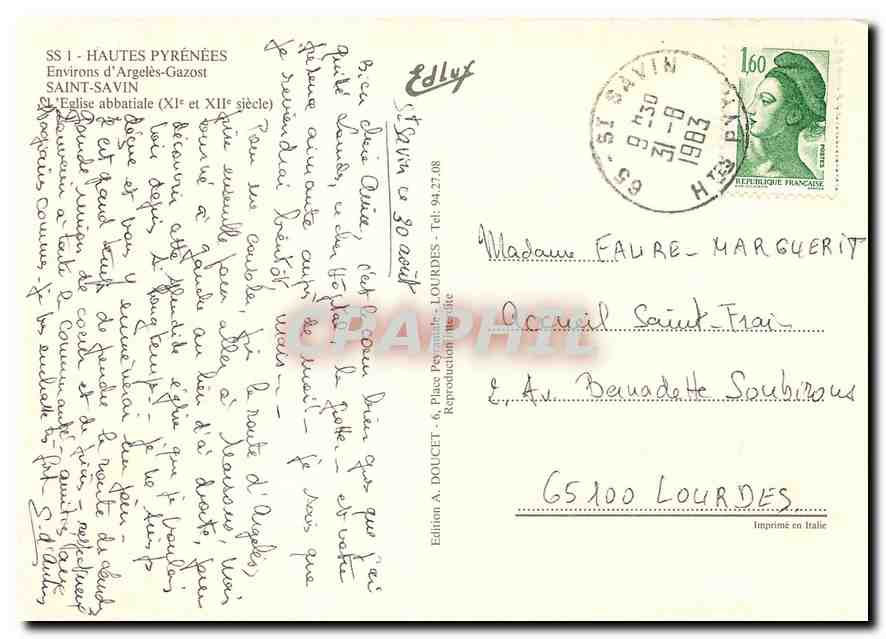 SS 1 - HAUTES PYRÉNÉES
Environs d'Argelès-Gazost
SAINT-SAVIN
L'Eglise abbatiale (XIe et XIIe siècle)
Edluf
65 - ST SAVIN
9 H30
31 - 8
1983
HTES PYR
1,60
POSTES
REPUBLIQUE FRANÇAISE
St Savin ce 30 août
Bien chère Amie, c'est le coeur bien gros que j'ai
quitté Lourdes, ce cher Hôpital, la grotte - et votre
présence aimante auprès de moi! - je sais que
je reviendrai bientôt mais - -
Pour me consoler, sur la route d'Argelès,
ensemble pour aller à mais
tourné à gauche au lieu d'à droite, pour
découvrir cette splendide église que je voulais
voir depuis si longtemps! - je ne suis pas
déçue et vous y emmènerai un jour -
Il est grand temps de prendre la route
grande union de coeur et de prières - respectueux
souvenir à toute la Communauté - amitiés aux
je vous embrasse très fort
Edition A. DOUCET - 6, Place Peyramale - LOURDES - Tel: 94.27.08
Reproduction interdite
Madame FAURE-MARGUERIT
Accueil Saint-Frai-
2, Av. Bernadette Soubirous
65100 LOURDES
Imprimé en Italie
CPAPHIL